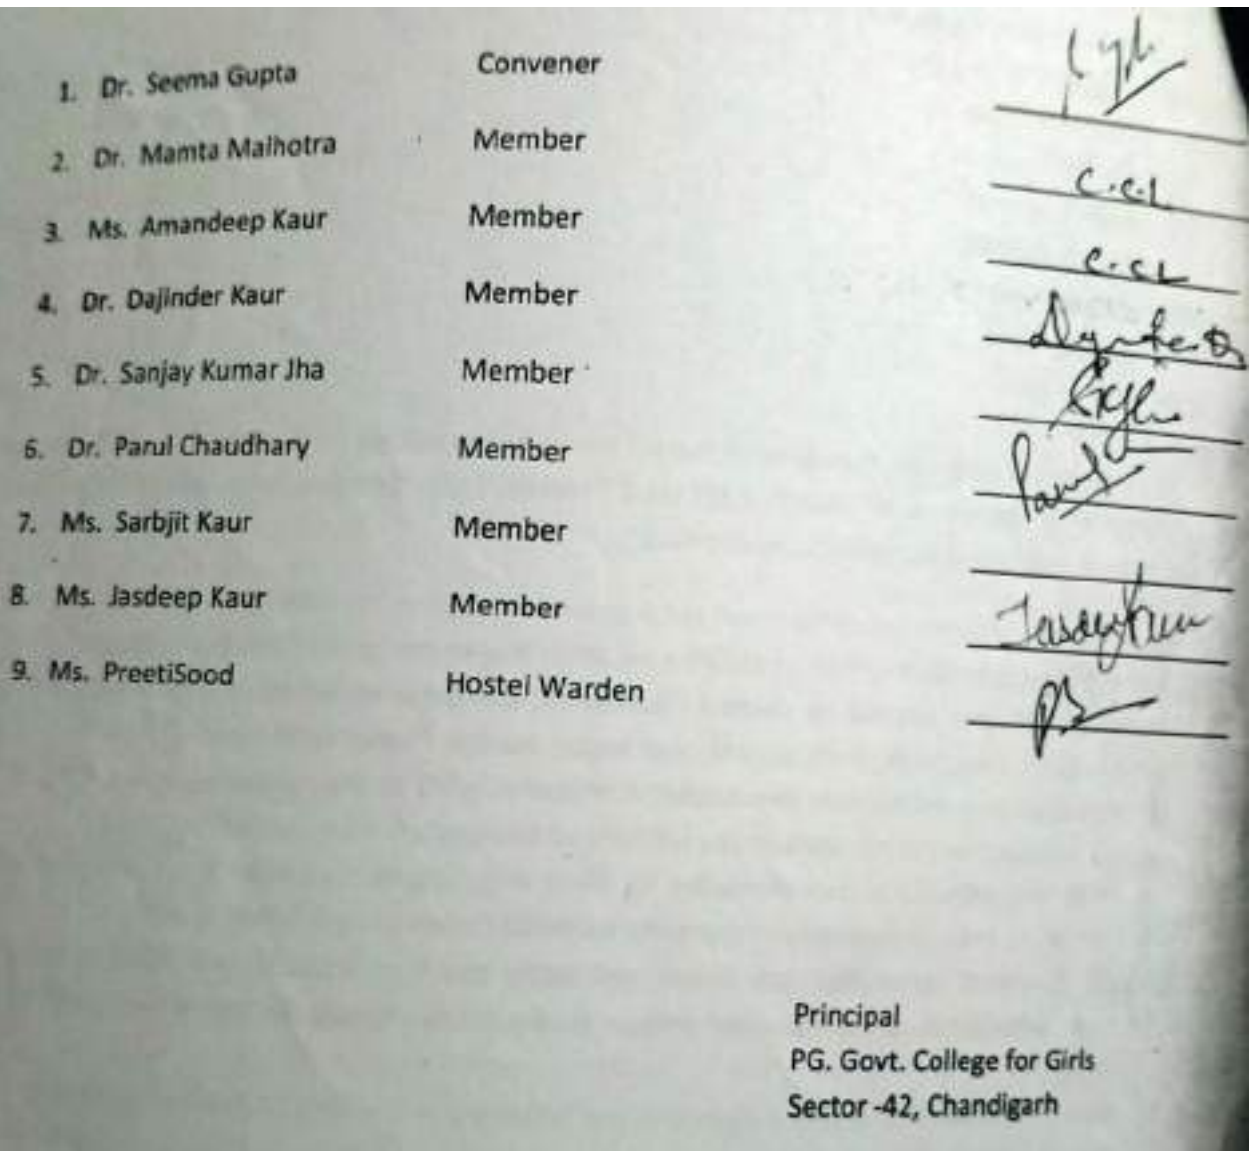 1. Dr. Seema Gupta Convener
2. Dr. Mamta Malhotra Member C.C.L
3. Ms. Amandeep Kaur Member C.CL
4. Dr. Dajinder Kaur Member
5. Dr. Sanjay Kumar Jha Member
6. Dr. Parul Chaudhary Member Parul
7. Ms. Sarbjit Kaur Member
8. Ms. Jasdeep Kaur Member
9. Ms. PreetiSood Hostel Warden
Principal
PG. Govt. College for Girls
Sector -42, Chandigarh